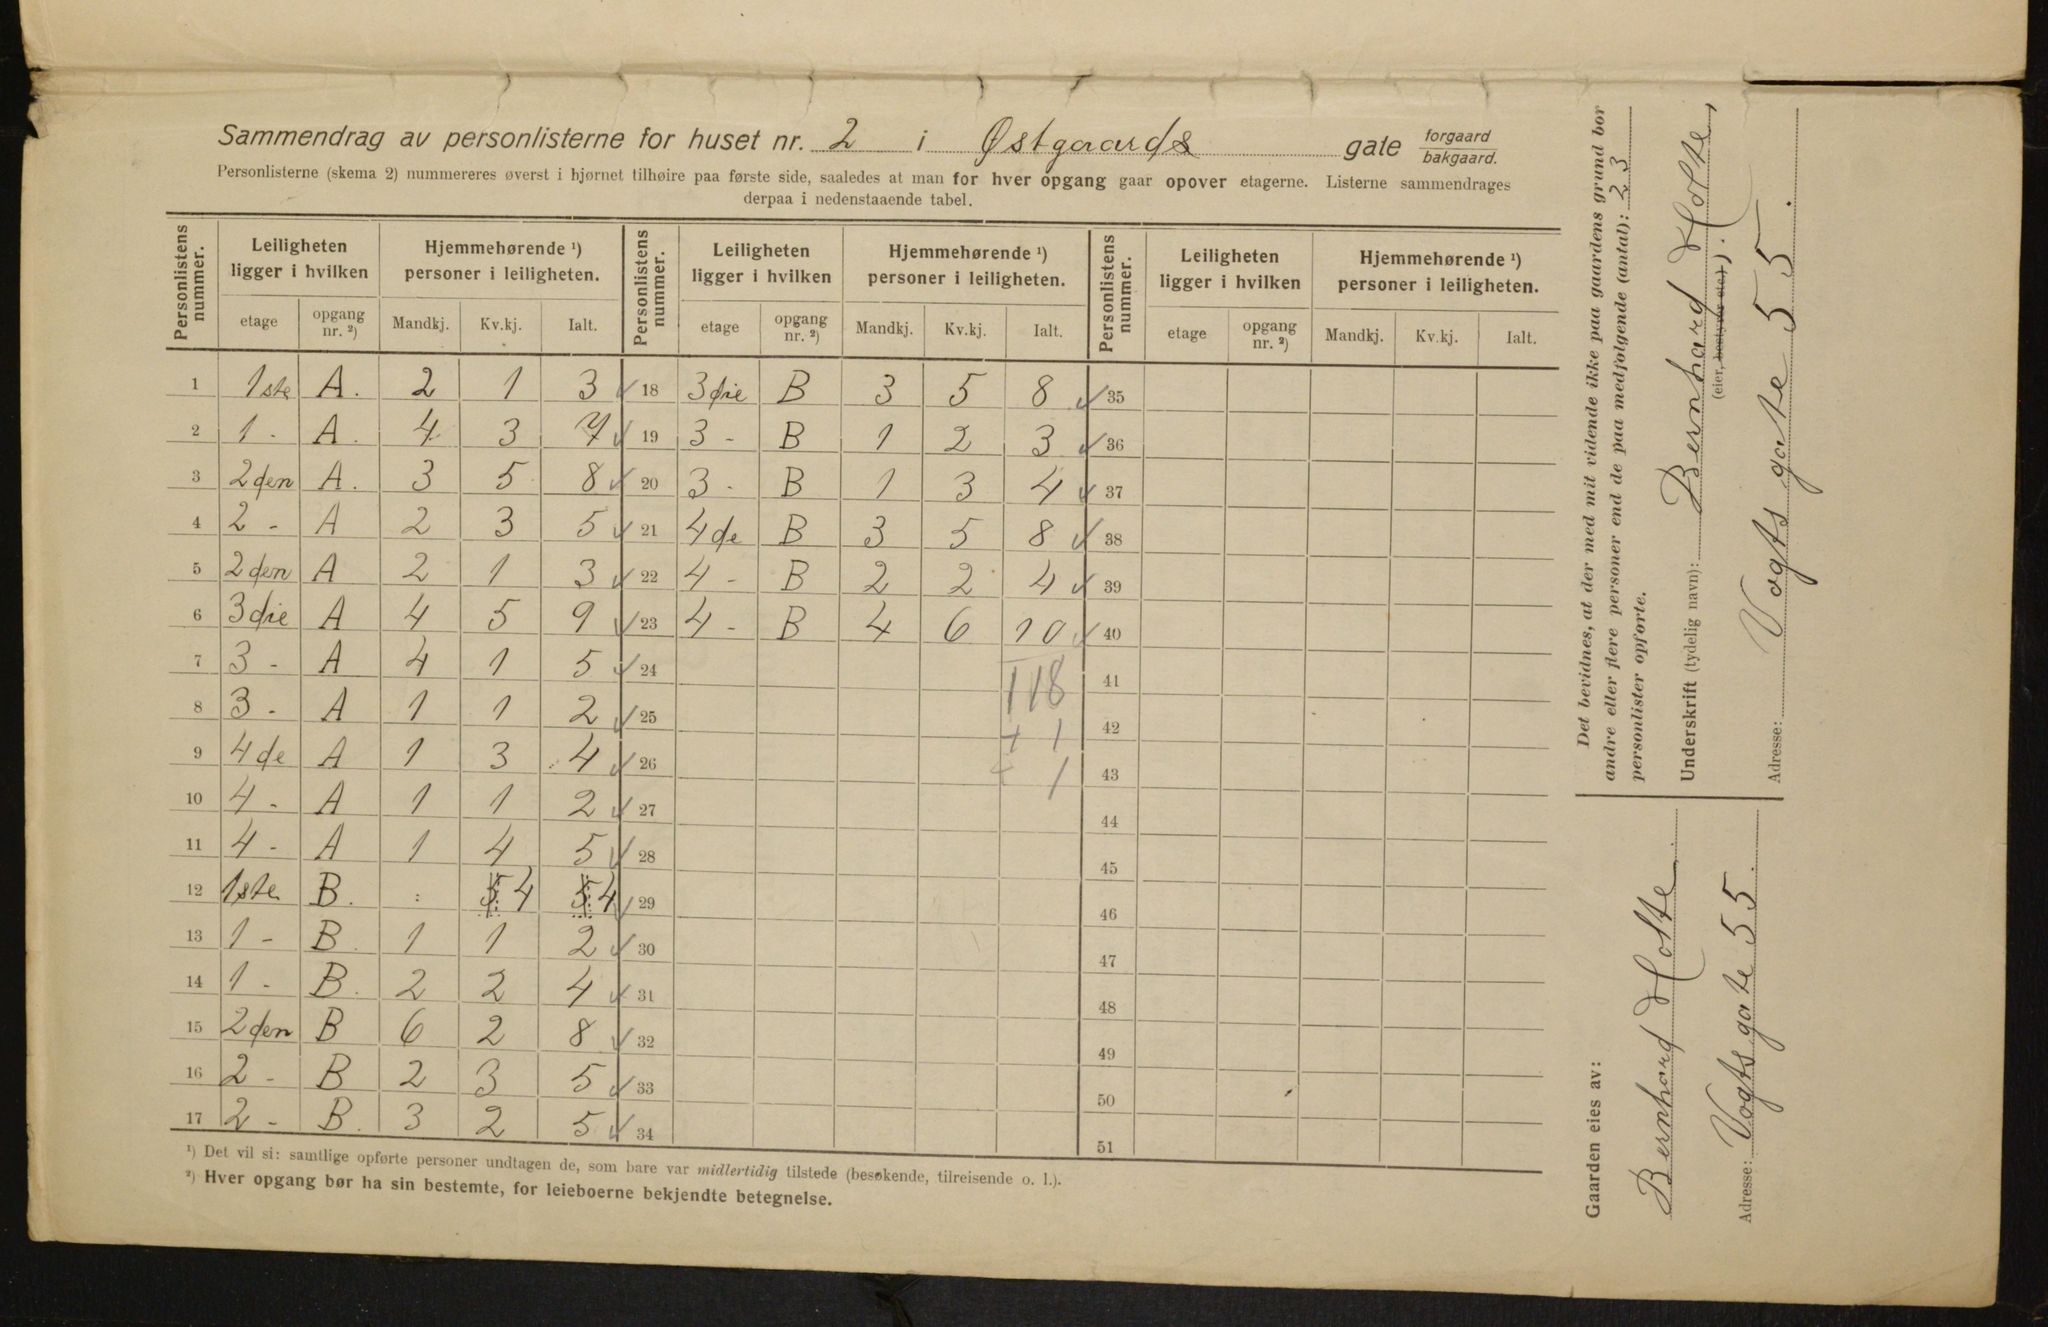 Sammendrag av personlisterne for huset nr. 2 i Østgaards gate forgaard bakgaard.
Personlisterne (skema 2) nummereres øverst i hjørnet tilhøire paa første side, saaledes at man for hver opgang gaar opover etagerne. Listerne sammendrages
derpaa i nedenstaaende tabel.
Personlistens nummer. Leiligheten ligger i hvilken Hjemmehørende ¹) personer i leiligheten. Personlistens nummer. Leiligheten ligger i hvilken Hjemmehørende ¹) personer i leiligheten. Personlistens nummer. Leiligheten ligger i hvilken Hjemmehørende ¹) personer i leiligheten.
etage opgang nr. ²) Mandkj. Kv.kj. Ialt. etage opgang nr. ²) Mandkj. Kv.kj. Ialt. etage opgang nr. ²) Mandkj. Kv.kj. Ialt.
1 1ste A. 2 1 3 ✓ 18 3die B 3 5 8 ✓ 35
2 1 - A. 4 3 7 ✓ 19 3 - B 1 2 3 ✓ 36
3 2den A. 3 5 8 ✓ 20 3 - B 1 3 4 ✓ 37
4 2 - A 2 3 5 ✓ 21 4de B 3 5 8 ✓ 38
5 2den A 2 1 3 ✓ 22 4 - B 2 2 4 ✓ 39
6 3die A 4 5 9 ✓ 23 4 - B 4 6 10 ✓ 40
7 3 - A 4 1 5 ✓ 24 118 41
8 3 - A 1 1 2 ✓ 25 + 1 42
9 4de A 1 3 4 ✓ 26 1 43
10 4 - A 1 1 2 ✓ 27 44
11 4 - A 1 4 5 ✓ 28 45
12 1ste B. : 5 4 5 4 ✓ 29 46
13 1 - B. 1 1 2 ✓ 30 47
14 1 - B. 2 2 4 ✓ 31 48
15 2den B 6 2 8 ✓ 32 49
16 2 - B 2 3 5 ✓ 33 50
17 2 - B. 3 2 5 ✓ 34 51
¹) Det vil si: samtlige opførte personer undtagen de, som bare var midlertidig tilstede (besøkende, tilreisende o. l.).
²) Hver opgang bør ha sin bestemte, for leieboerne bekjendte betegnelse.
Det bevidnes, at der med mit vidende ikke paa gaardens grund bor
andre eller flere personer end de paa medfølgende (antal): 23
personlister opførte.
Underskrift (tydelig navn): Bernhard Holte,
(eier, bestyrer etc.).
Adresse: Vogts gate 55.
Gaarden eies av:
Bernhard Holte
Adresse: Vogts gate 55.